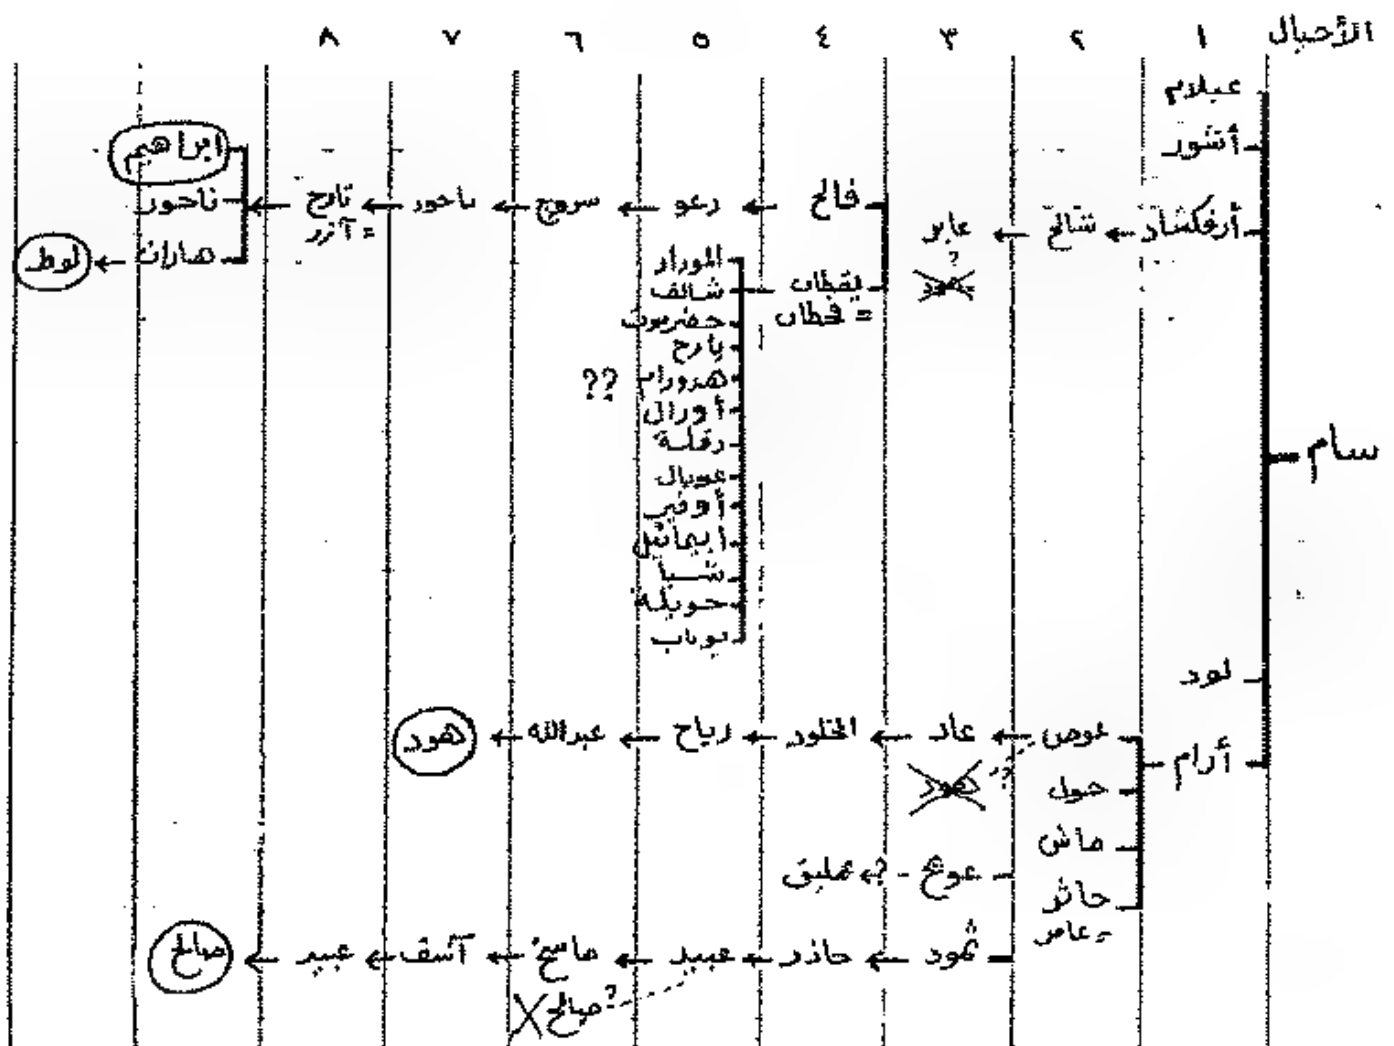 الأجيال ١ ٢ ٣ ٤ ٥ ٦ ٧ ٨
عيلام
أشور
ابراهيم
أرفكشاد ← شالخ ← عابر
فالخ ← رعو ← سروج ← ناحور ← تارح ← ناحور
= آزر
هاران ← لوط
?
هود
يقطان
= قحطان
الموداد
شالف
حضرموت
يارح
هدورام ??
أوزال
دقلة
عوبال
أوفير
أبيمائيل
شبا
حويلة
يوباب
سام
لود
أرام
عوص ← عاد ← الخلود ← رياح ← عبدالله ← هود
? هود
حول
ماش
عوج - ? ← عمليق
جاثر
= عامر
ثمود ← حاذر ← عبيد ← ماسخ ← آسف ← عبيد ← صالح
? صالح X